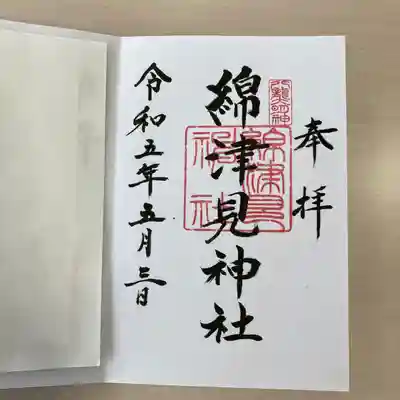 奉拝
綿津見神社
綿津見
神社
令和五年五月三日